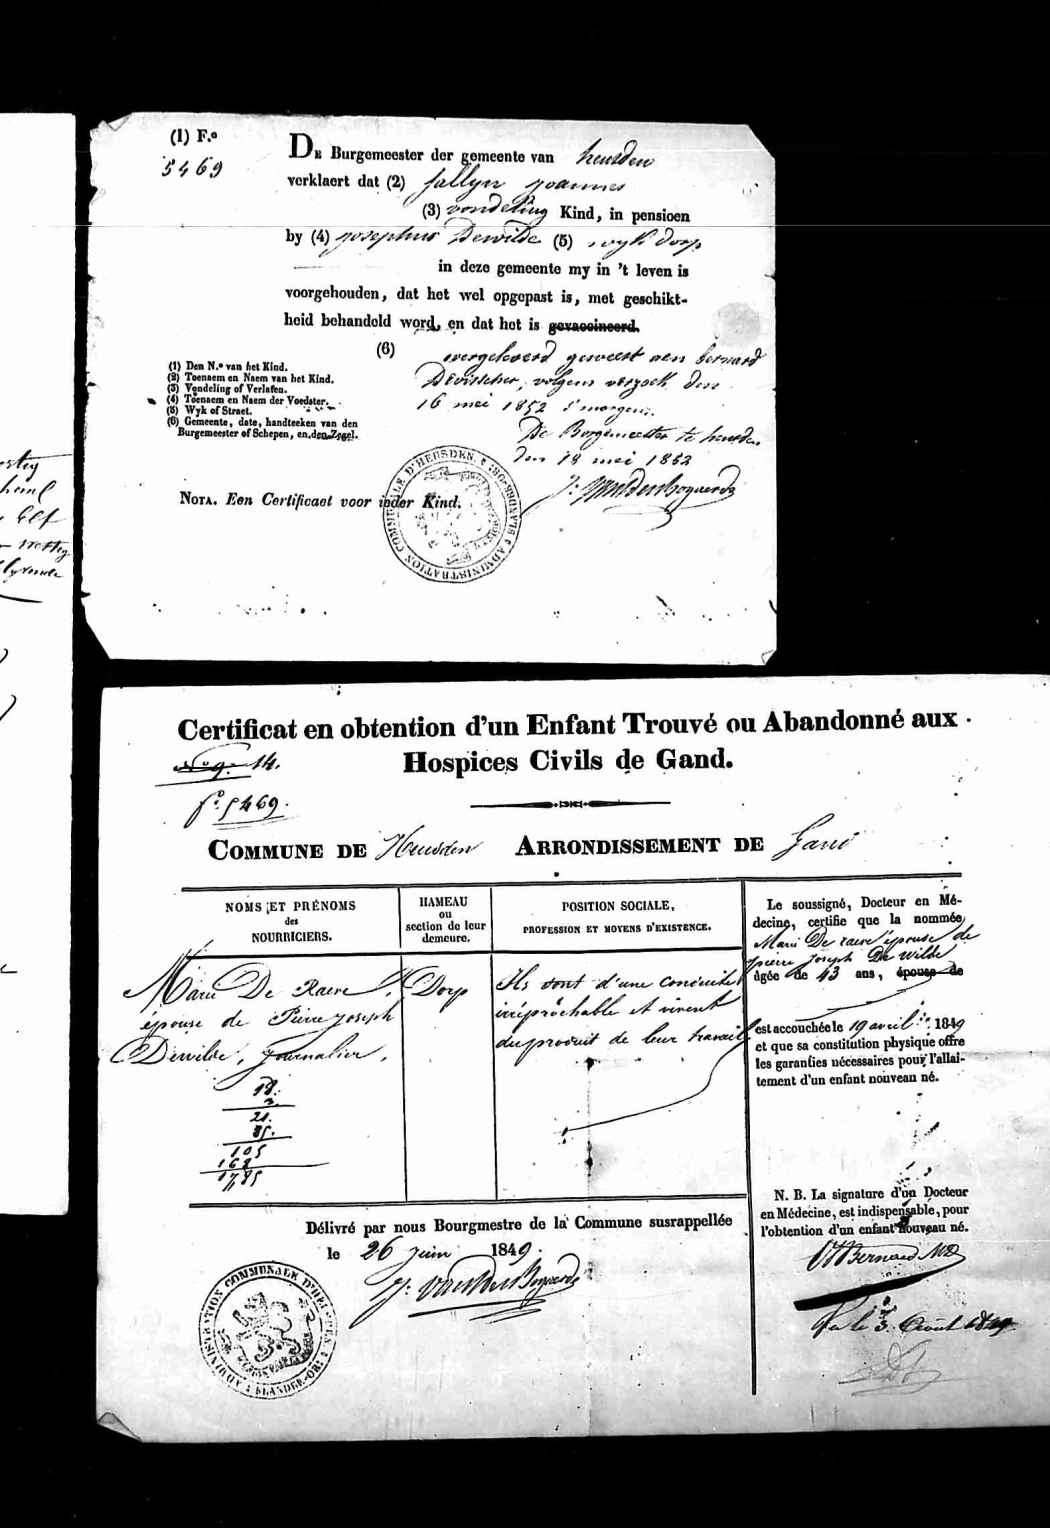 (1) F.º
5469
De Burgemeester der gemeente van heusden
verklaert dat (2) fallyn joannes
(3) vondeling Kind, in pensioen
by (4) josephus Dewilde (5) wyk dorp
in deze gemeente my in 't leven is
voorgehouden, dat het wel opgepast is, met geschikt-
heid behandeld word, en dat het is gevaccineerd.
(6) overgeleverd geweest aen bernard
Devisscher, volgens verzoek den
16 mei 1852 s'morgens.
De Borgemeester te heusden
den 18 mei 1852
J: Vandenbogaerde
(1) Den N.º van het Kind.
(2) Toenaem en Naem van het Kind.
(3) Vondeling of Verlaten.
(4) Toenaem en Naem der Voedster.
(5) Wyk of Straet.
(6) Gemeente, date, handteeken van den
Burgemeester of Schepen, en den Zegel.
Nota. Een Certificaet voor ieder Kind.
ADMINISTRATION COMMUNALE D'HEUSDEN. FLANDRE-OR:
Certificat en obtention d'un Enfant Trouvé ou Abandonné aux
Hospices Civils de Gand.
Nº 9. 14.
fº. 5469.
Commune de Heusden Arrondissement de Gand
NOMS ET PRÉNOMS
des
NOURRICIERS.
HAMEAU
ou
section de leur
demeure.
POSITION SOCIALE,
PROFESSION ET MOYENS D'EXISTENCE.
Marie De Raeve,
épouse de Pierre joseph
Dewilde, journalier.
Dorp
Ils sont d'une conduite
irréprochable et vivent
du produit de leur travail
18.
3.
21.
85.
105
168
17,85
Le soussigné, Docteur en Mé-
decine, certifie que la nommée
Marie De raeve épouse de
pierre joseph De wilde
âgée de 43 ans, épouse de
est accouchée le 19 avril 1849
et que sa constitution physique offre
les garanties nécessaires pour l'allai-
tement d'un enfant nouveau né.
N. B. La signature d'un Docteur
en Médecine, est indispensable, pour
l'obtention d'un enfant nouveau né.
Bernard MD
Vu le 3. Août 1849
Délivré par nous Bourgmestre de la Commune susrappellée
le 26 juin 1849.
J: Vandenbogaerde
ADMINISTRATION COMMUNALE D'HEUSDEN. FLANDRE-OR: